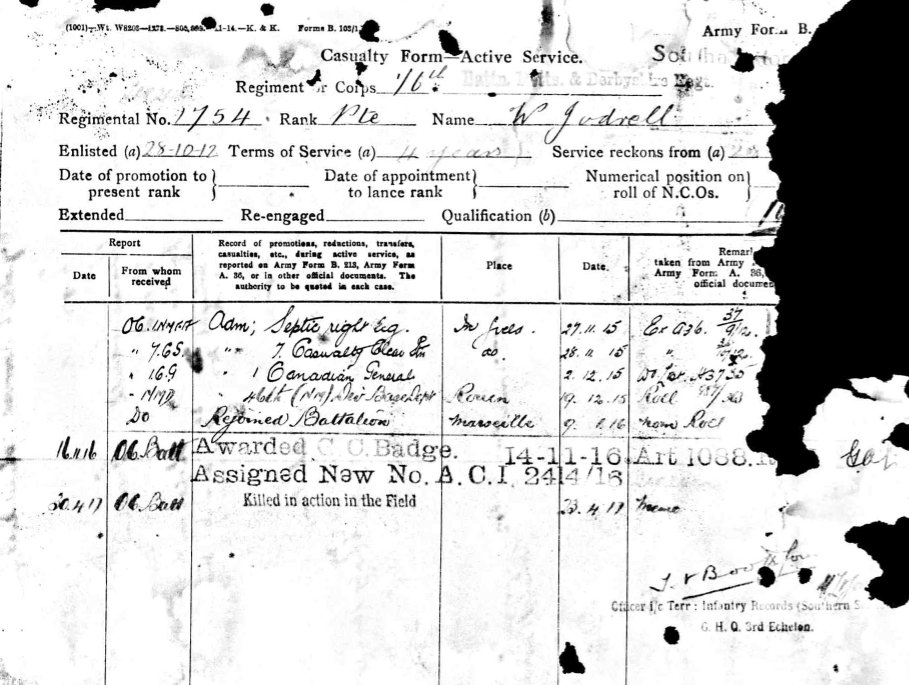 (1001) Wt. W8203 K. & K. Forms B. 103/1
Army Form B.
Casualty Form—Active Service.
Regiment or Corps 1/6th Battn. Notts. & Derbyshire Regt.
Regimental No. 1754 Rank Pte Name W Jodrell
Enlisted (a) 28-10-12 Terms of Service (a) 4 years Service reckons from (a)
Date of promotion to present rank } Date of appointment to lance rank } Numerical position on roll of N.C.Os. }
Extended Re-engaged Qualification (b)
Report
Date
From whom received
Record of promotions, reductions, transfers, casualties, etc., during active service, as reported on Army Form B. 213, Army Form A. 36, or in other official documents. The authority to be quoted in each case.
Place
Date.
Remar
taken from Army
Army Form A. 36,
official documen
OC. Adm; Septic right leg. In field. 27.11.15 Ex A36.
" " 7 Casualty Clear Stn do. 28.11.15 "
" " 1 Canadian General 2.12.15
" " 46th (NM) Div Base Dept Rouen 19.12.15 Roll
Do Rejoined Battalion Marseille 9.1.16 Nom Roll
16.11.16 OC. Batt Awarded G. C. Badge. 14-11-16. Art 1088.
Assigned New No. A.C.I. 2414/16
30.4.17 OC. Batt Killed in action in the Field 23.4.17
Officer i/c Terr: Infantry Records (Southern S
G. H. Q. 3rd Echelon.